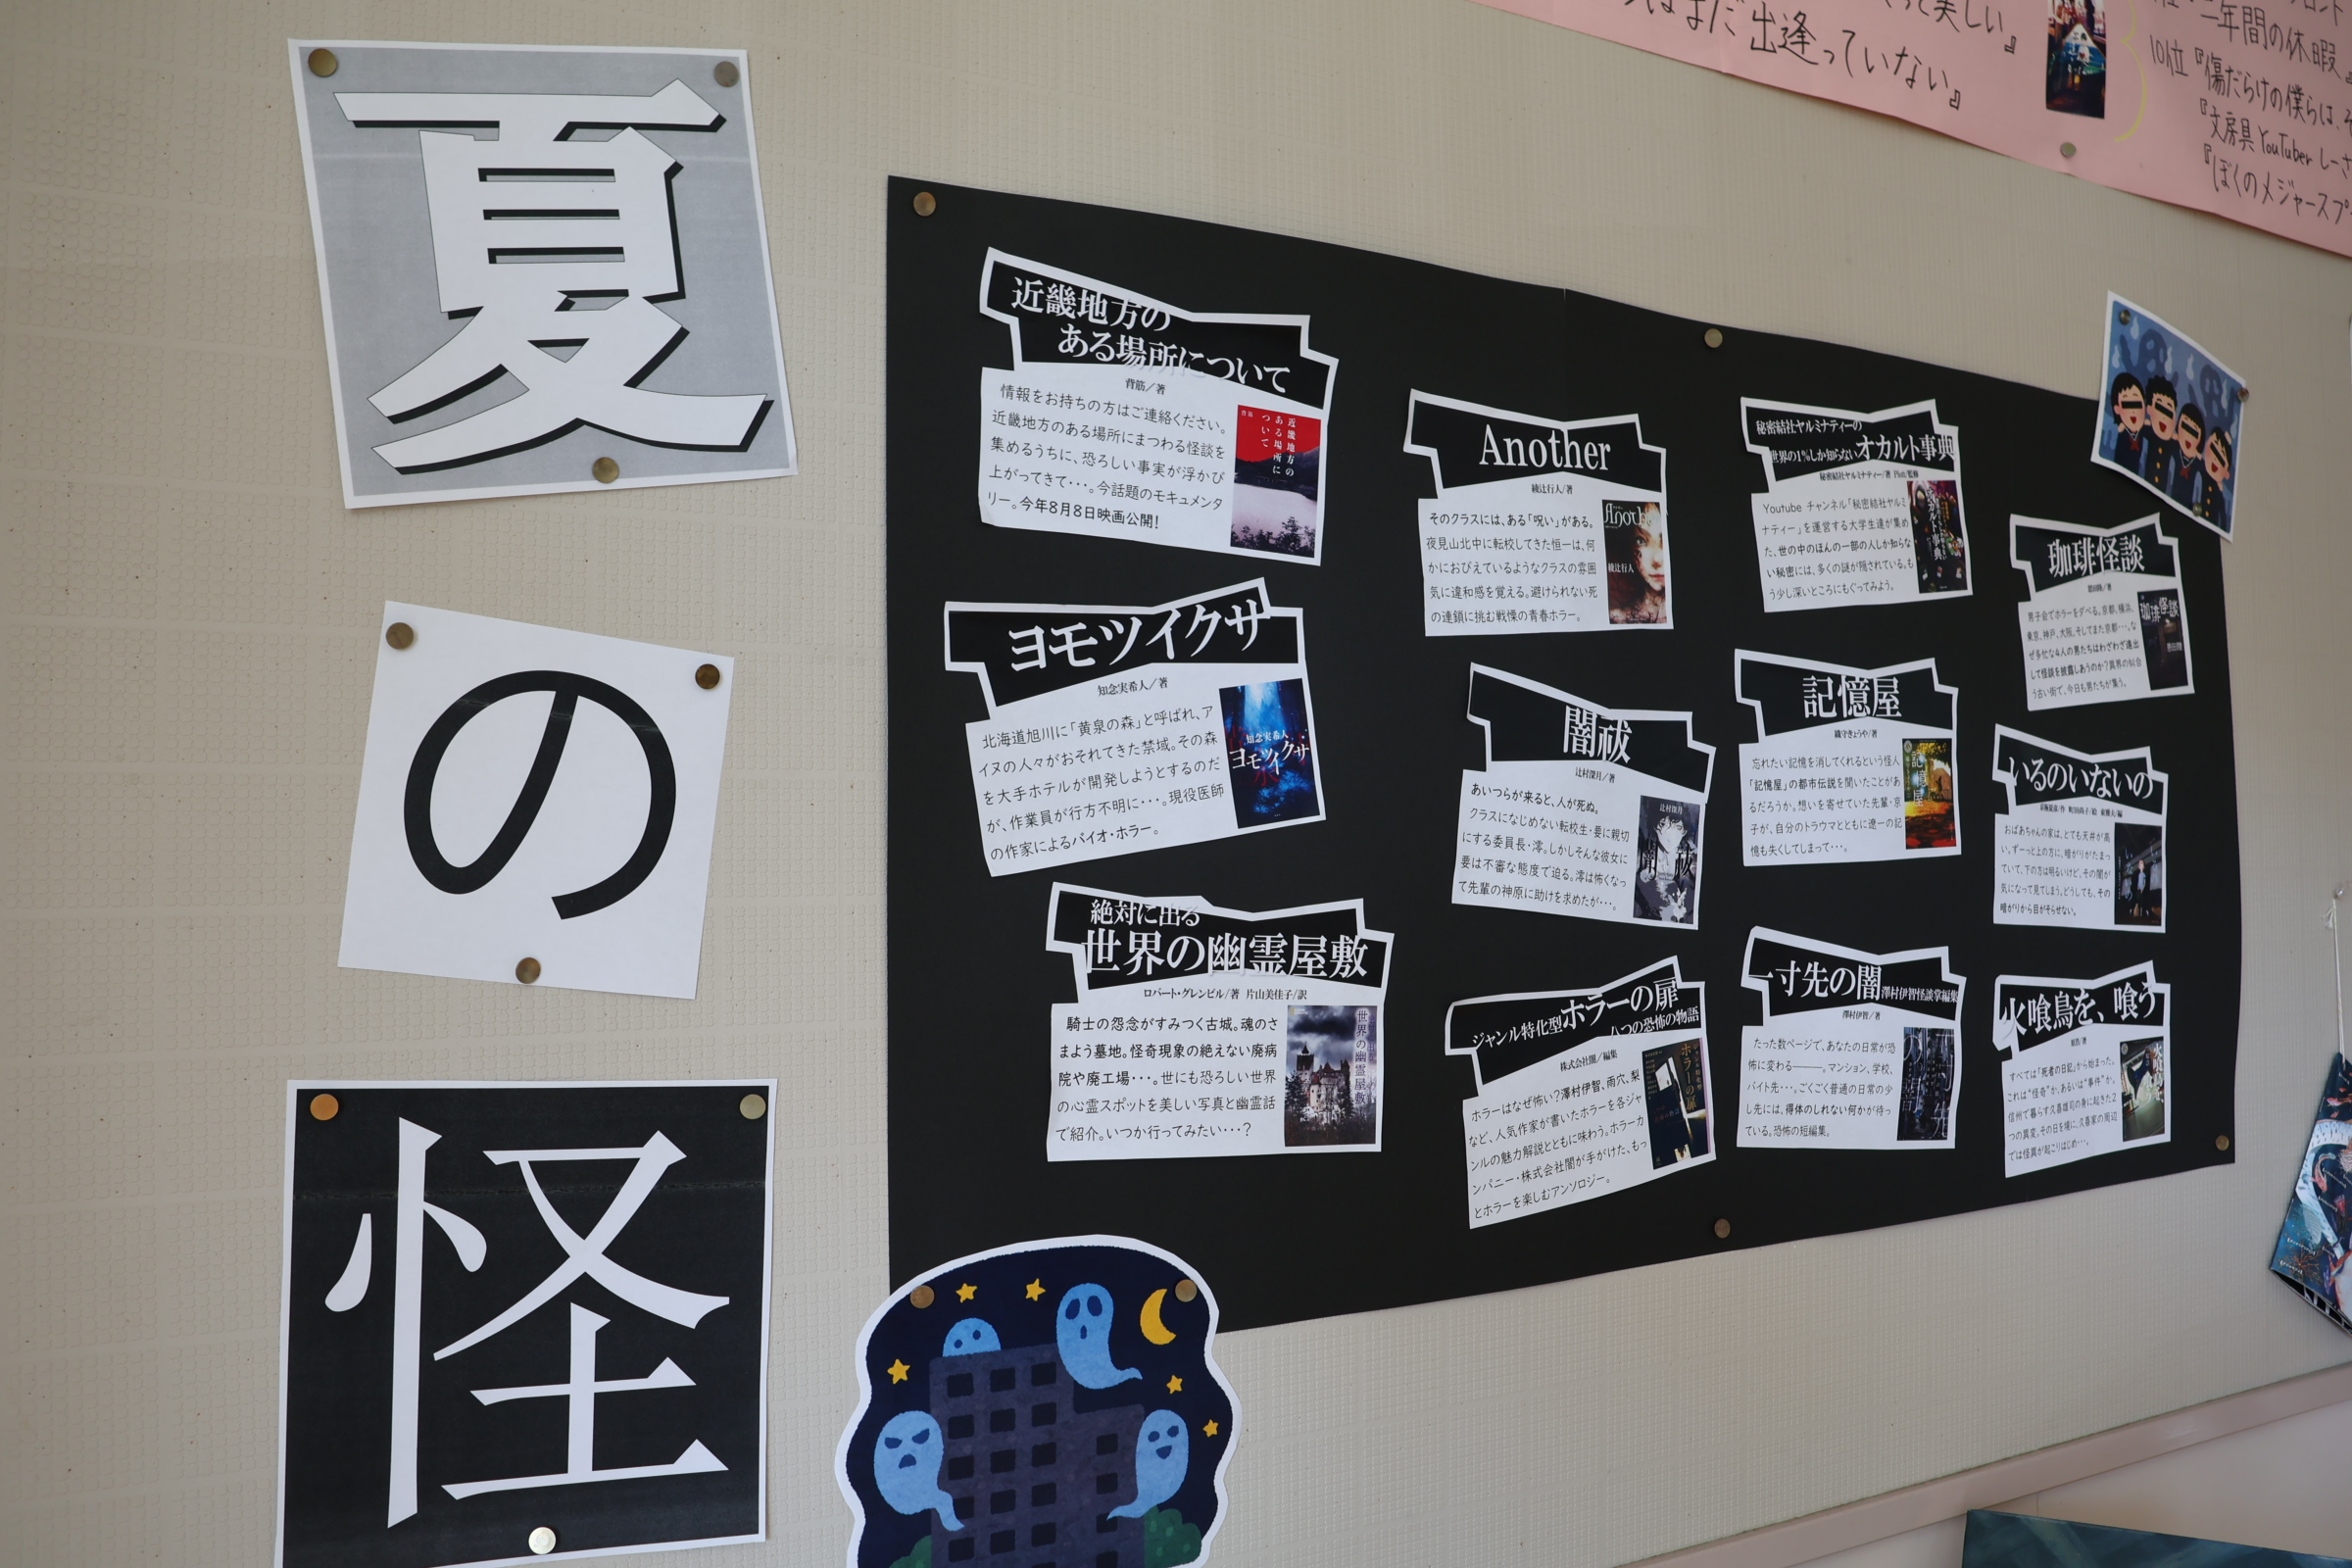 夏
の
怪
近畿地方の
ある場所について
背筋/著
情報をお持ちの方はご連絡ください。
近畿地方のある場所にまつわる怪談を
集めるうちに、恐ろしい事実が浮かび
上がってきて・・・。今話題のモキュメンタ
リー。今年8月8日映画公開!
近畿地方の
ある場所に
ついて
背筋
ヨモツイクサ
知念実希人/著
北海道旭川に「黄泉の森」と呼ばれ、ア
イヌの人々がおそれてきた禁域。その森
を大手ホテルが開発しようとするのだ
が、作業員が行方不明に・・・。現役医師
の作家によるバイオ・ホラー。
知念実希人
ヨモツイクサ
絶対に出る
世界の幽霊屋敷
ロバート・グレンビル/著 片山美佳子/訳
騎士の怨念がすみつく古城。魂のさ
まよう墓地。怪奇現象の絶えない廃病
院や廃工場・・・。世にも恐ろしい世界
の心霊スポットを美しい写真と幽霊話
で紹介。いつか行ってみたい・・・?
世界の幽霊屋敷
Another
綾辻行人/著
そのクラスには、ある「呪い」がある。
夜見山北中に転校してきた恒一は、何
かにおびえているようなクラスの雰囲
気に違和感を覚える。避けられない死
の連鎖に挑む戦慄の青春ホラー。
Another
綾辻行人
闇祓
辻村深月/著
あいつらが来ると、人が死ぬ。
クラスになじめない転校生・要に親切
にする委員長・澪。しかしそんな彼女に
要は不審な態度で迫る。澪は怖くなっ
て先輩の神原に助けを求めたが・・・。
辻村深月
闇祓
ジャンル特化型ホラーの扉
八つの恐怖の物語
株式会社闇/編集
ホラーはなぜ怖い?澤村伊智、雨穴、梨
など、人気作家が書いたホラーを各ジャ
ンルの魅力解説とともに味わう。ホーラーカ
ンパニー・株式会社闇が手がけた、もっ
とホラーを楽しむアンソロジー。
ホラーの扉
秘密結社ヤルミナティーの
世界の1%しか知らないオカルト事典
秘密結社ヤルミナティー/著 Plott/監修
Youtube チャンネル「秘密結社ヤルミ
ナティー」を運営する大学生達が集め
た、世の中のほんの一部の人しか知らな
い秘密には、多くの謎が隠されている。も
う少し深いところにもぐってみよう。
記憶屋
織守きょうや/著
忘れたい記憶を消してくれるという怪人
「記憶屋」の都市伝説を聞いたことがあ
るだろうか。想いを寄せていた先輩・京
子が、自分のトラウマとともに遼一の記
憶も失くしてしまって・・・。
記憶屋
一寸先の闇 澤村伊智怪談掌編集
澤村伊智/著
たった数ページで、あなたの日常が恐
怖に変わる―――。マンション、学校、
バイト先・・・。ごくごく普通の日常の少
し先には、得体のしれない何かが待っ
ている。恐怖の短編集。
珈琲怪談
恩田陸/著
男子会でホラーをダベる。京都、横浜、
東京、神戸、大阪、そしてまた京都・・・。な
ぜ多忙な4人の男たちはわざわざ遠出
して怪談を披露しあうのか?異界の似合
う古い街で、今日も男たちが集う。
珈琲怪談
恩田陸
いるのいないの
京極夏彦/作 町田尚子/絵 東雅夫/編
おばあちゃんの家は、とても天井が高
い。ずーっと上の方に、暗がりがたまっ
ていて、下の方は明るいけど、その闇が
気になって見てしまう。どうしても、その
暗がりから目がそらせない。
火喰鳥を、喰う
原浩/著
すべては「死者の日記」から始まった。
これは“怪奇”か、あるいは“事件”か。
信州で暮らす久喜雄司の身に起きた2
つの異変。その日を境に、久喜家の周辺
では怪異が起こりはじめ・・・。
って美しい』
はまだ出逢っていない』
二年間の休暇』
10位『傷だらけの僕らは、そ
『文房具YouTuberしーさ
『ぼくのメジャースプ